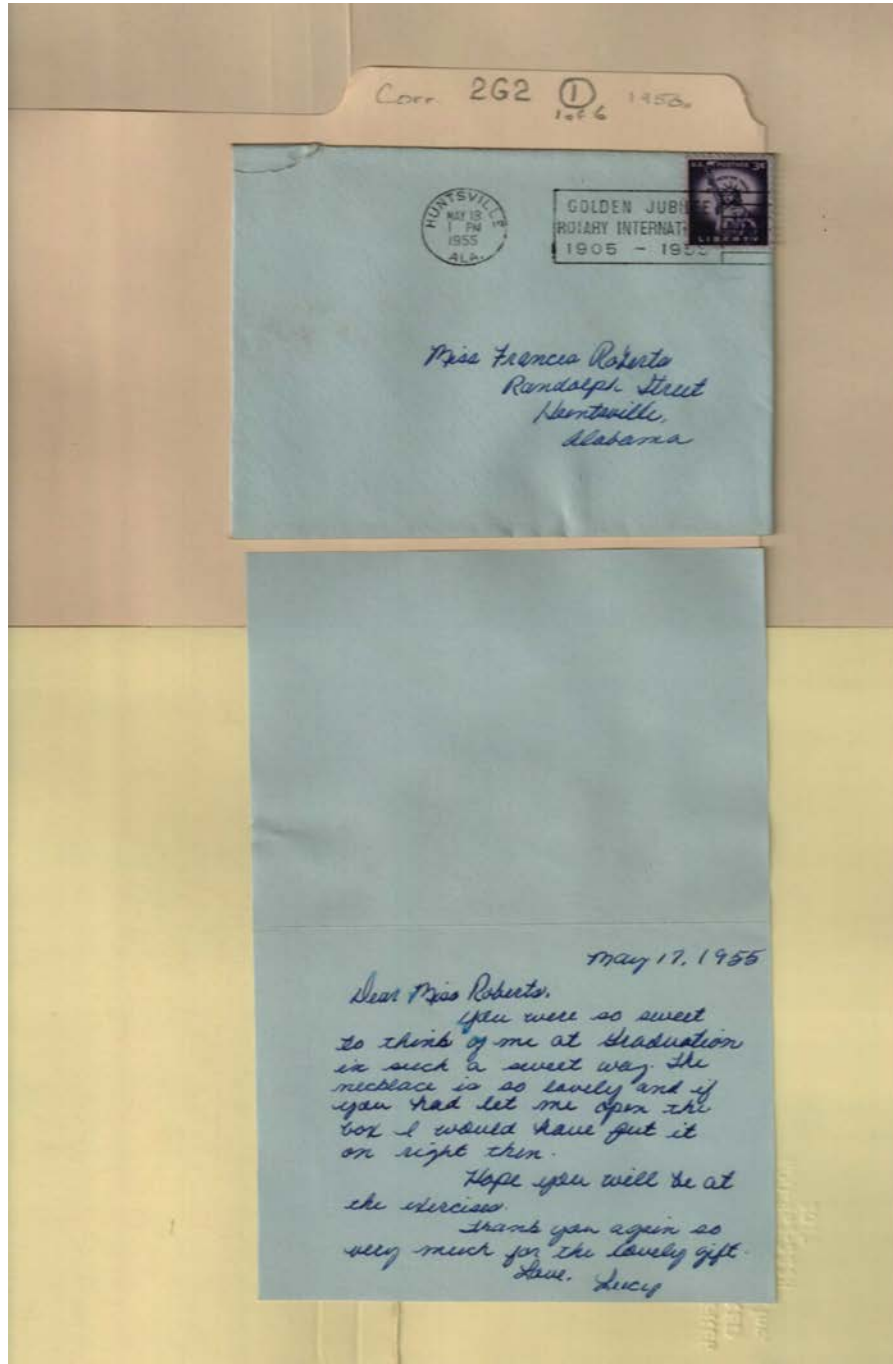 Corr. 2G2 1
1 of 6
HUNTSVILLE
MAY 18
1 PM
1955
ALA.
GOLDEN JUBILEE
ROTARY INTERNAT
1905 - 1955
U.S. POSTAGE 3¢
LIBERTY
Miss Frances Roberts
Randolph Street
Huntsville,
Alabama
May 17, 1955
Dear Miss Roberts,
You were so sweet
to think of me at Graduation
in such a sweet way. The
necklace is so lovely and if
you had let me open the
box I would have put it
on right then.
Hope you will be at
the exercises.
Thank you again so
very much for the lovely gift.
Love, Lucy